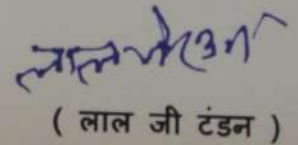 लालजी टंडन
( लाल जी टंडन )